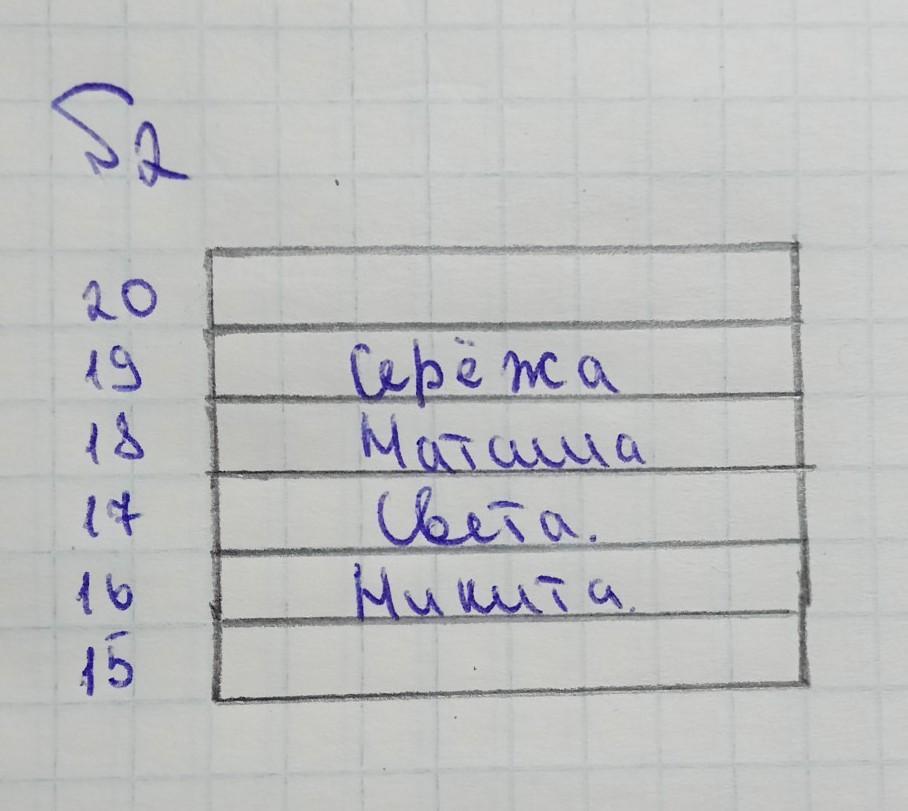 №2
20
19 Серёжа
18 Наташа
17 Света.
16 Никита.
15